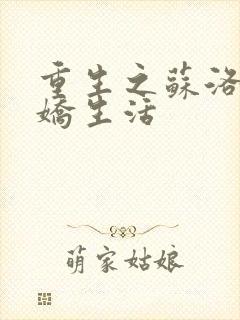 重生之蘇洛
嬌生活
萌家姑娘